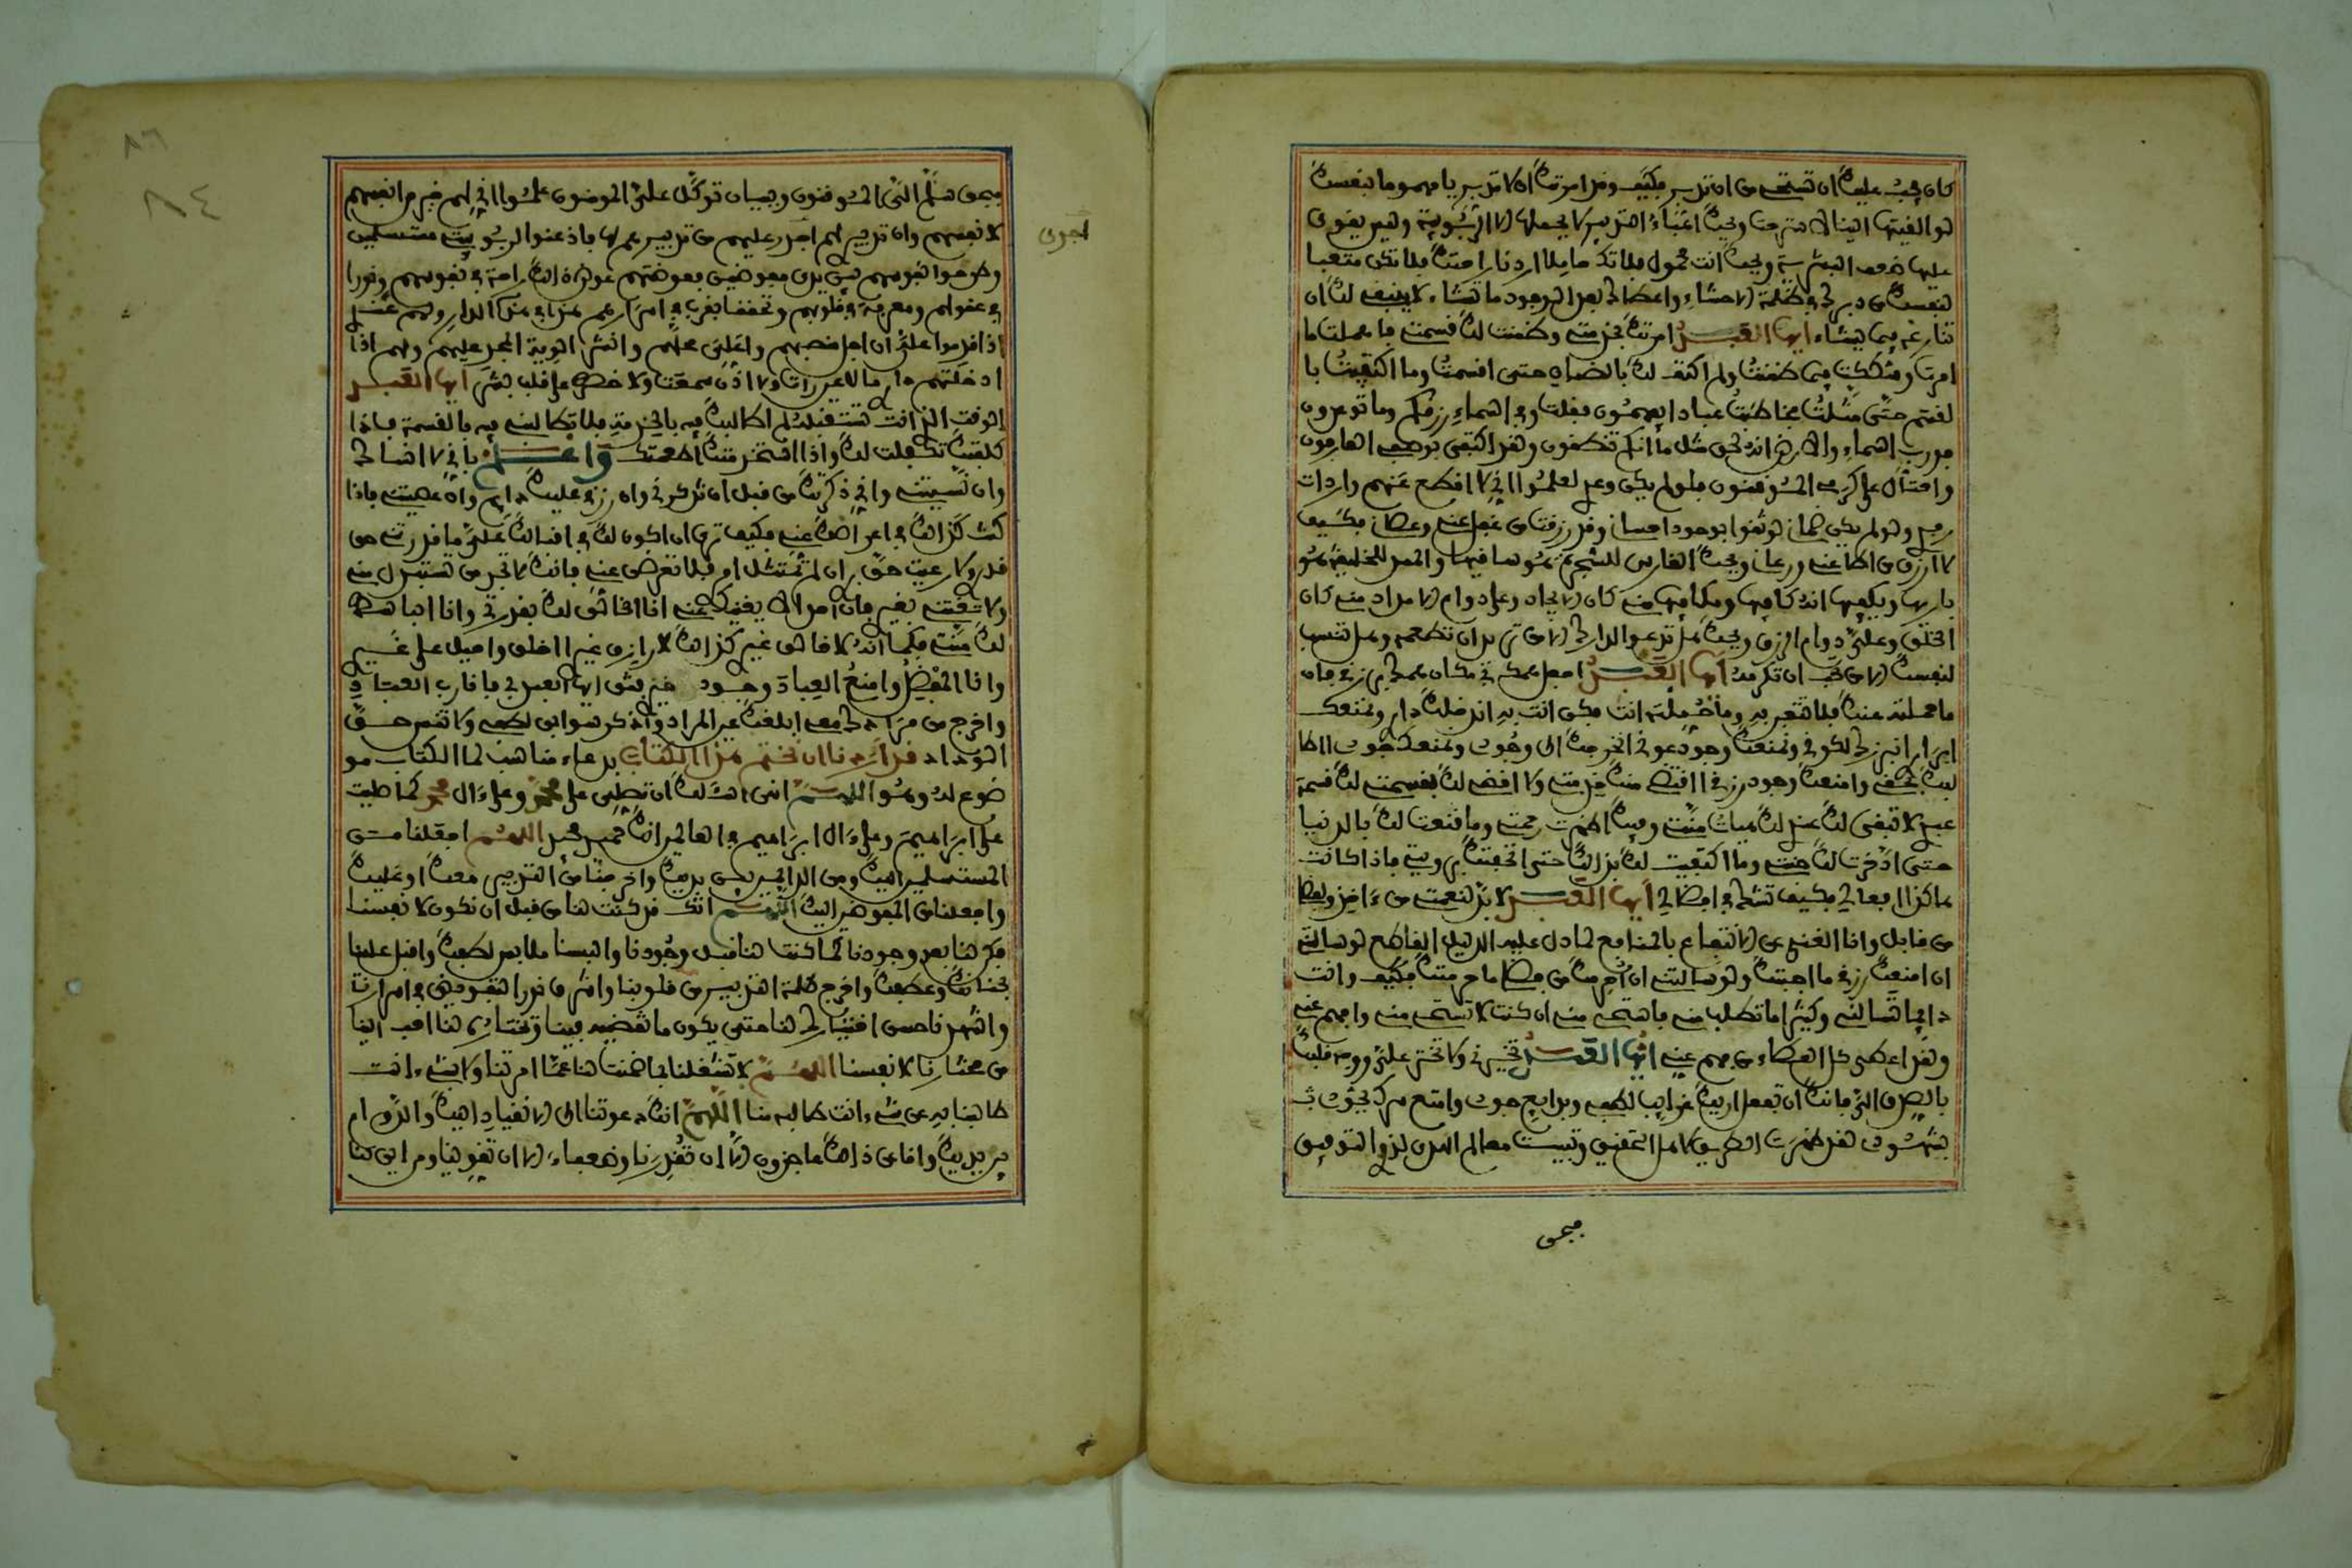 كان يجب عليك ان تستحي من ان تدبر فكيف وقد امرتك ان لا تدبر يا مهموما بنفسك
لو القيتها الينا لاسترحت ويحك اعباء التدبير لا يحملها الا الربوبية وليس يقوى
عليها ضعف البشرية ويحك انت محمول فلا تك حاملا اردنا راحتك فلا تكن متعبا
لنفسك من دبرك في ظلمة الاحشاء واعطاك بعد الوجود ما تشاء لا ينبغي لك ان
تنازعه فيما يشاء ايها العبد امرتك بخدمتي وضمنت لك قسمتي فاهملت ما
امرت وشككت فيما ضمنت ولم اكتف لك بالضمان حتى اقسمت وما اكتفيت با
لقسم حتى مثلت مخاطبت عبادا يفهمون فقلت وفي السماء رزقكم وما توعدون
فورب السماء والارض انه لحق مثل ما انكم تنطقون ولقد اكتفى بوصفي العارفون
واحتال على كرمي الموقنون فلو لم يكن وعدي لعلموا اني لا اقطع عنهم واردات
رفدي ولو لم يكن ضماني لوثقوا بوجود احساني وقد رزقت من غفل عني وعصاني فكيف
لا ارزق من اطاعني ورعاني ويحك الغارس للشجرة هو ساقيها والممد للخليقة هو
باريها ويكفيها انه كافيها ومكافيها مني كان الايجاد وعلي دوام الامداد مني كان
الخلق وعلي دوام الرزق ويحك هل تدعو الى دارك الا من تريد ان تطعمه وهل تنسب
لنفسك الا من تحب ان تكرمه ايها العبد اجعل همك في مكان همك برزقي فان
ما حملته عنك فلا تتعب به وما حملته انت فكن انت به اندخلك داري ونمنعك
ابراري انبرزك لكوني ونمنعك وجود عوني انخرجك الى وجودي ونمنعك جودي اطا
لبك بحقي وامنعك وجود رزقي اقتضي منك خدمتي ولا اقضي لك بقسمتي لك قسمة
عندي لا تبقى لك عندي لك هبات منتي وفيك اظهرت رحمتي وما قنعت لك بالدنيا
حتى ادخرت لك جنتي وما اكتفيت لك بذلك حتى اتحفتك برويتي فاذا كانت
هاكذا افعالي فكيف تشك في افضالي ايها العبد لا بد لنعمتي من ءاخذ ولفضلي
من قابل وانا الغني عن الانتفاع بالمنافع لما دل عليه الدليل القاطع لو سالتني
ان امنعك رزقي ما اجبتك ولو سالتني ان احرمك من فضلي ما حرمتك فكيف وانت
دايما تسالني وكثيرا ما تطلب مني فاستحي مني ان كنت لا تستحي مني وافهم عني
ولقد اعطى كل العطاء من فهم عني ايها العبد تخيرني ولا تختر علي ووجه قلبك
بالصدق الي فانك ان تفعل اريك غرايب لطفي وبدايع جودي وامتع سرك بجودي ثـ
بشهودي لقد ظهرت الطريق لاهل التحقيق وتبينت معالم الهدى لذوي التوفيق
فبحق
فبحق سلم الي الموقنون وببيان توكل علي المومنون علموا اني لهم خير من انفسهم
لانفسهم وان تدبيري لهم اجدى عليهم من تدبيرهم لها فاذعنوا لربوبيتي مستسلمين
اجدى
وطرحوا نفوسهم بين يدي مفوضين فعوضتهم عن ذلك راحة في نفوسهم ونورا
في عقولهم ومعرفة في قلوبهم وتحققا بقربي في اسرارهم هذا في هذه الدار ولهم عندي
اذا قدموا علي ان اجل منصبهم واعلي محلهم وانشر الوية المجد عليهم ولهم اذا
ادخلتهم داري ما لا عين رات ولا اذن سمعت ولا خطر على قلب بشر ايها العبد
الوقت الذي انت تستقبله لم اطالبك فيه بالخدمة فلا تطالبني فيه بالقسمة فاذا
كلفتك تكفلت لك واذا استخدمتك اطعمتك واعلم باني لا انساك
وان نسيتني واني ذكرتك من قبل ان تذكرني وان رزقي عليك دايم وان عصيتني فاذا
كنت كذلك في اعراضك عني فكيف ترى ان اكون لك في اقبالك علي ما قدرتني حق
قدري ولا رعيت حق بري ان لم تمتثل امري فلا تعرض عني فانك لا تجد من تستبدل مني
ولا تغتني بغيري فان احدا لا يغنيك عني انا الخالق لك بقدرتي وانا الباسط
لك منتي فكما انه لا خالق غيري كذلك لا رازق غيري ااخلق واحيل على غيري
وانا المفضل وامنع العباد وجود خيري ثق ايها العبد بي فانا رب العباد
واخرج من مرادك لي معي ابلغك عين المراد واذكر سوابق لطفي ولا تنس حق
الوداد قد اردنا ان نختم هذا الكتاب بدعاء مناسب لما الكتاب مو
ضوع له وهو اللهم انى اسئلك ان تصلي على محمد وعلى ءال محمد كما صليت
على ابراهيم وعلى ءال ابراهيم في العالمين انك حميد مجيد اللهم اجعلنا من
المستسلمين اليك ومن الدايمين بين يديك واخرجنا من التدبير معك او عليك
واجعلنا من المفوضين اليك اللهم انك قد كنت لنا من قبل ان نكون لانفسنا
فكن لنا بعد وجودنا كما كنت لنا قبل وجودنا والبسنا ملابس لطفك واقبل علينا
بحنانك وعطفك واخرج ظلمة التدبير من قلوبنا واشرق نور التفويض في اسرارنا
واشهدنا حسن اختيارك لنا حتى يكون ما تقضيه فينا وتختاره لنا احب الينا
من مختارنا لانفسنا اللهم لا تشغلنا بما ضمنت لنا عما امرتنا ولا بشيء انت
ضامننا به عن شيء انت طالبه منا اللهم انك دعوتنا الى الانقياد اليك والدوام
بين يديك وانا عن ذلك عاجزون الا ان تقدرنا وضعفاء الا ان تقوينا ومن اين لنا
٨٦
٨٤